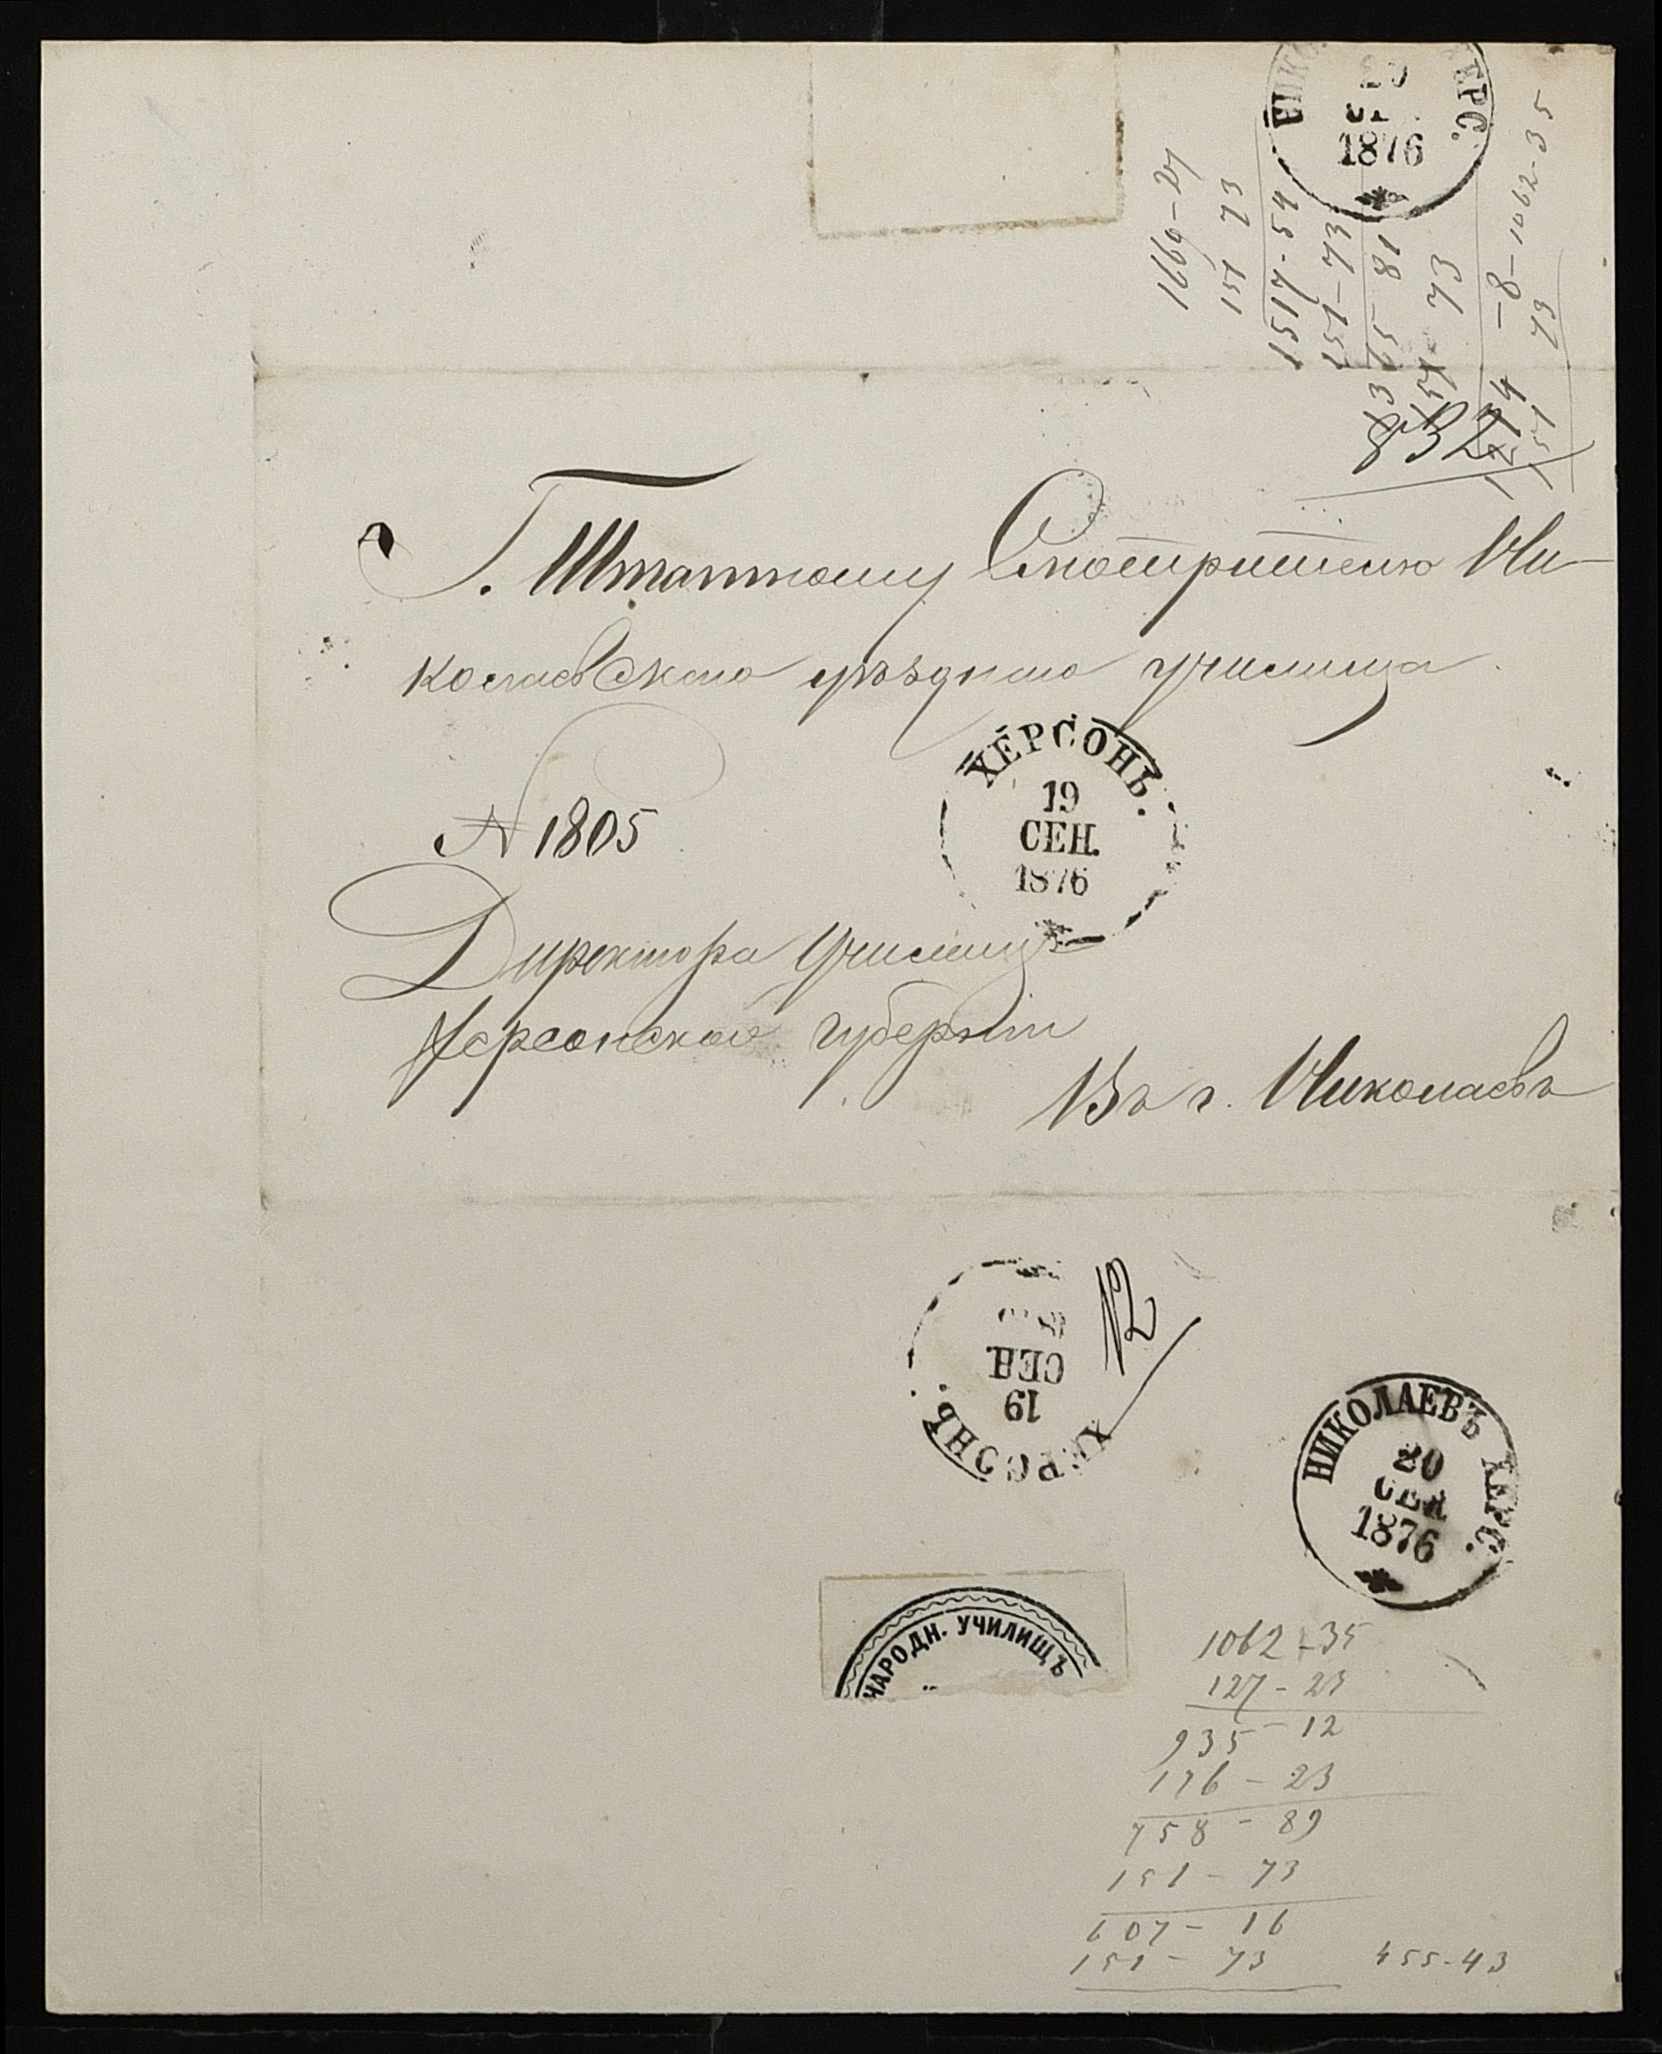 НИК ЕРС.
1876
1669-27
151 73
1517-54
151-73
1365 81
151 73
1214-8-1062-35
151 73
832
Г. Штатному Смотрителю Ни-
колаевскаго уѣзднаго училища.
ХЕРСОНЬ.
19
СЕН.
1876
№ 1805
Директора Училищъ
Херсонской губерніи
Въ г. Николаевъ
12
ХЕРСОНЬ.
19
СЕН.
НИКОЛАЕВЪ ХЕРС.
20
СЕН
1876
НАРОДН. УЧИЛИЩЪ
1062-35
127-23
935-12
176-23
758-89
151-73
607-16
151-73 455-43